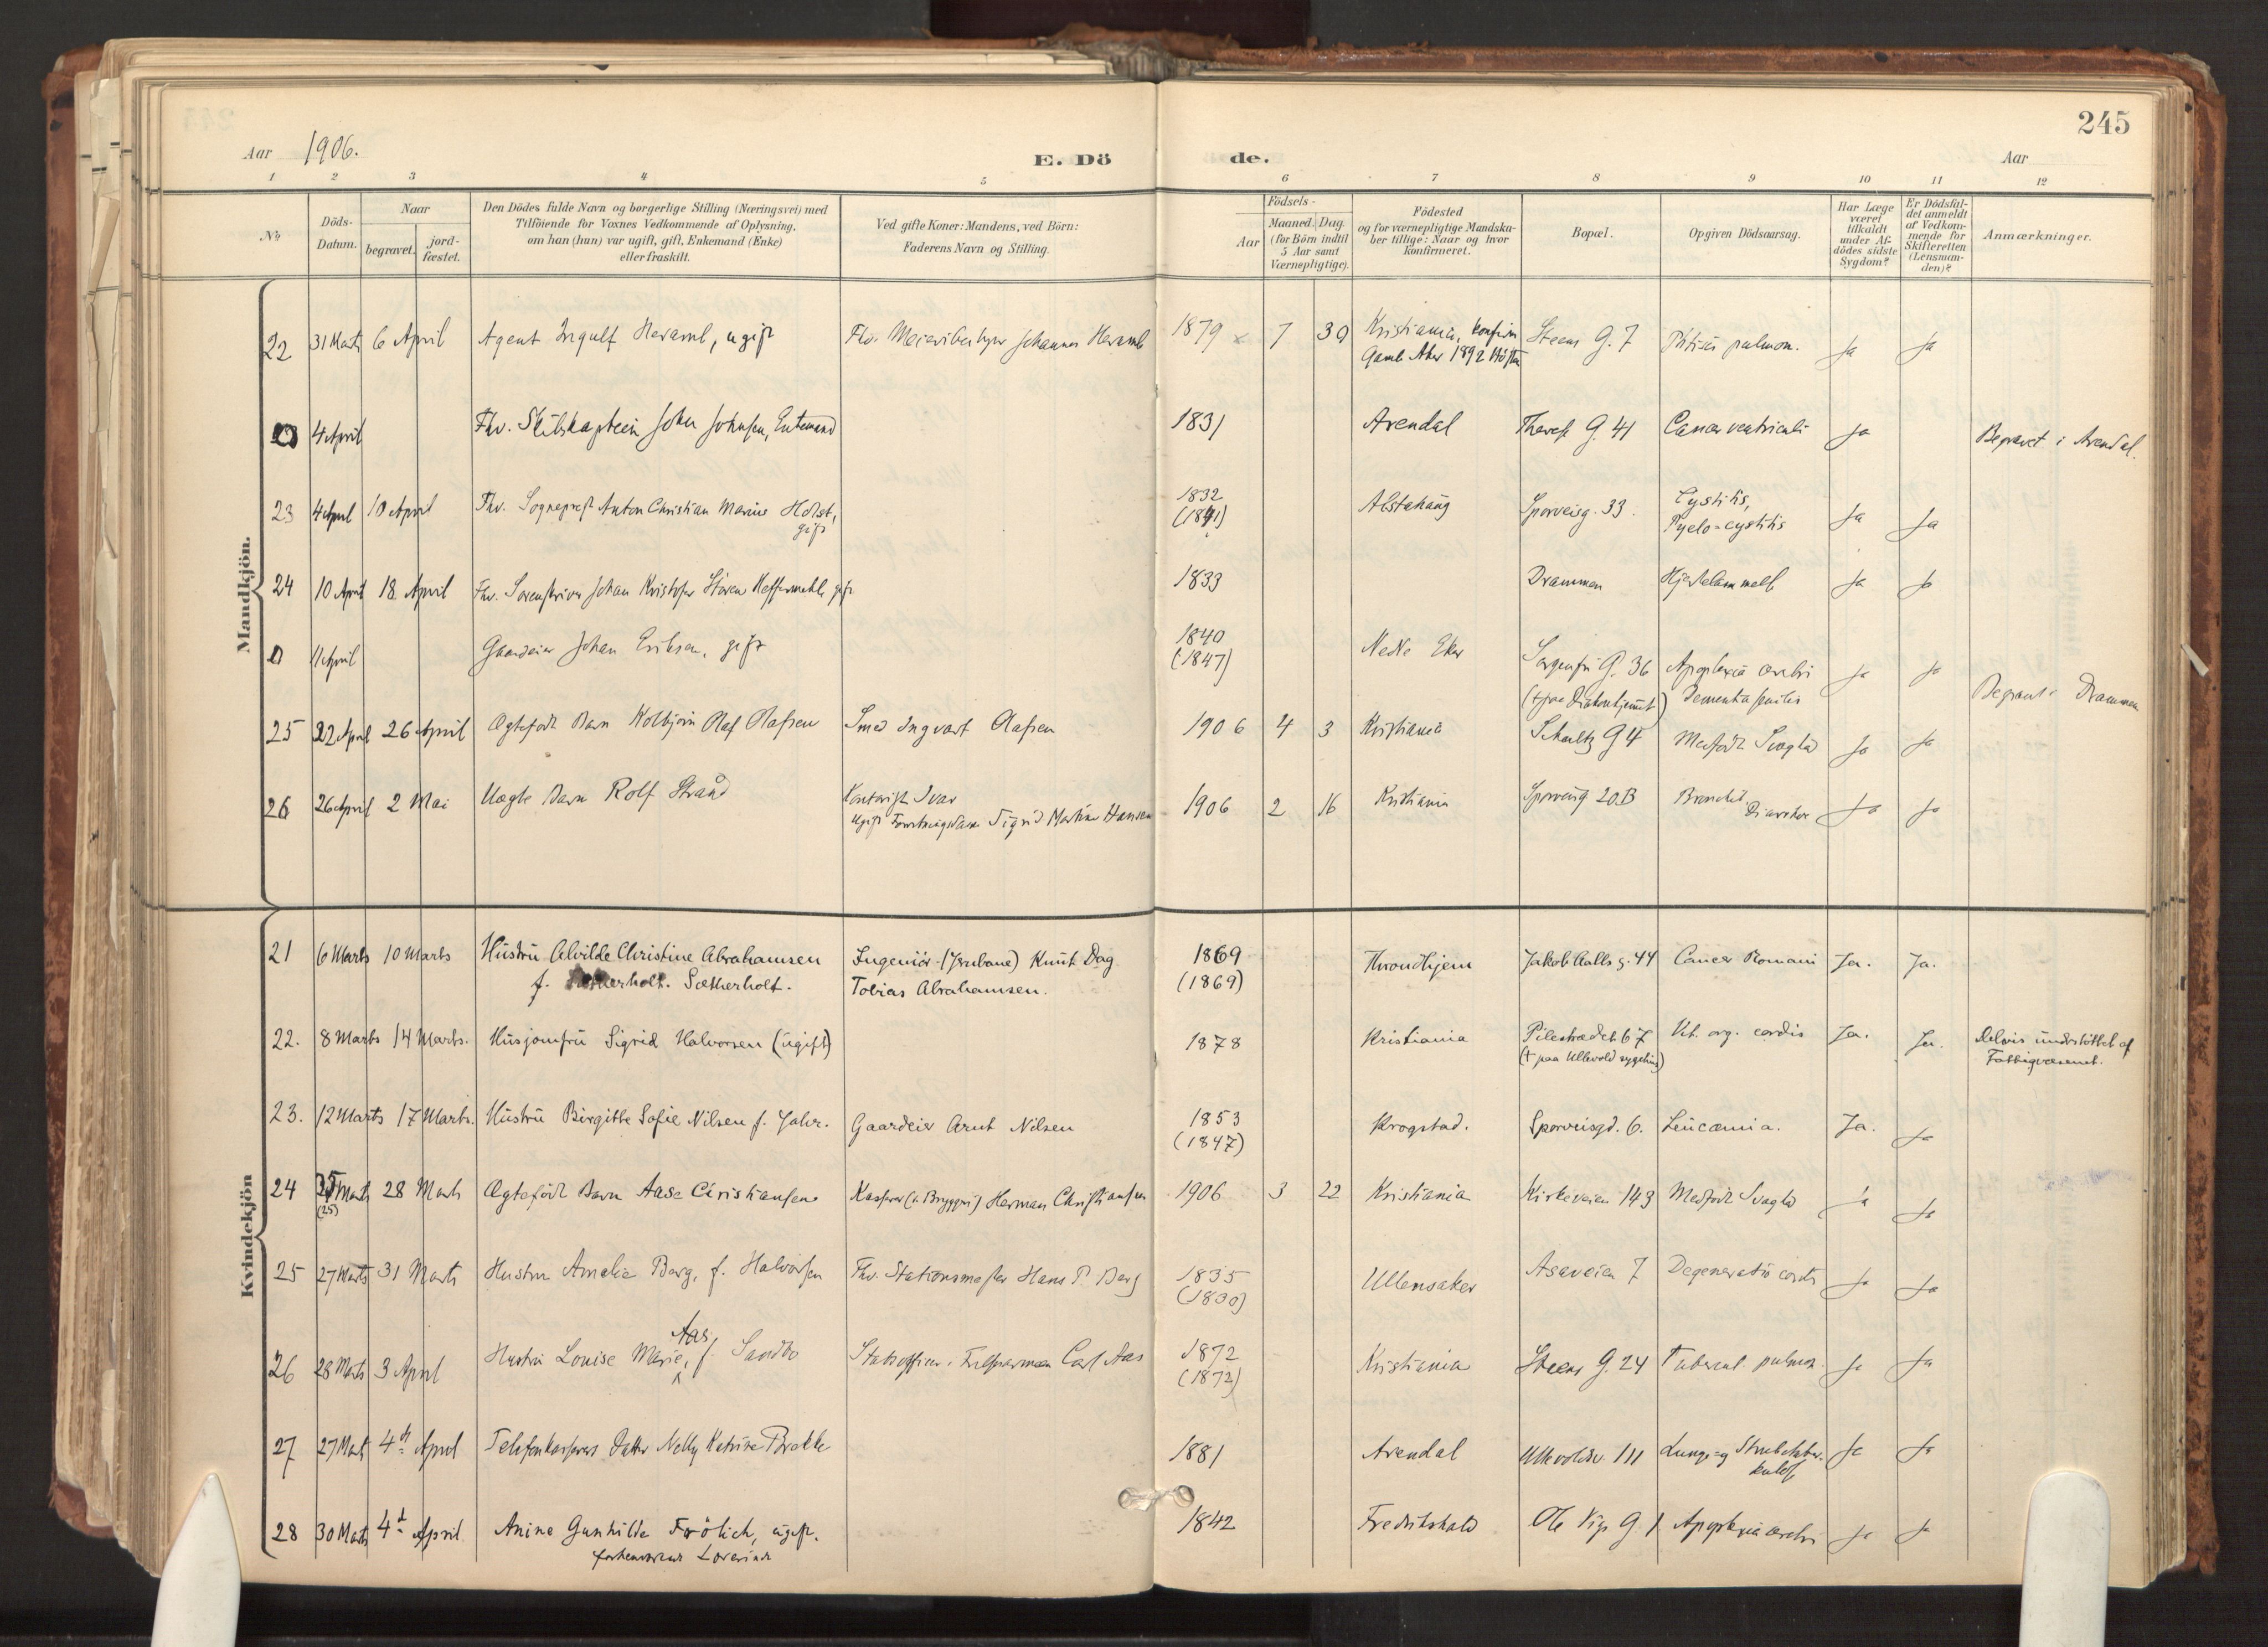 245
Aar 1906.
E. Dö de.
Aar
1 2 3 4 5 6 7 8 9 10 11 12
No
Döds-Datum.
Naar
begravet.
jord-fæstet.
Den Dödes fulde Navn og borgerlige Stilling (Næringsvei) med
Tilföiende for Voxnes Vedkommende af Oplysning,
om han (hun) var ugift, gift, Enkemand (Enke)
eller fraskilt.
Ved gifte Koner: Mandens, ved Börn:
Faderens Navn og Stilling.
Födsels-
Aar
Maaned. Dag.
(for Börn indtil
5 Aar samt
Værnepligtige).
Födested
og for værnepligtige Mandska-
ber tillige: Naar og hvor
konfirmeret.
Bopæl.
Opgiven Dödsaarsag.
Har Læge
været
tilkaldt
under Af-
dödes sidste
Sygdom?
Er Dödsfal-
det anmeldt
af Vedkom-
mende for
Skifteretten
(Lensman-
den)?
Anmærkninger.
Mandkjön.
22 31 Marts 6 April Agent Ingulf Heramb, ugift Fhv. Meieribestyrer Johannes Heramb 1879 7 30 Kristiania, konfirm Steens G. 7 Phtisis pulmon. Ja Ja
Gamle Aker 1892 Høsten
0 4 April Fhv. Skibskaptein John Johnsen, Enkemand 1831 Arendal Therese G. 41 Cancer ventriculi Ja Begravet i Arendal.
23 4 April 10 April Fhv. Sogneprest Anton Christian Marius Holst, 1832 Alstahaug Sporveisg. 33. Cystitis, Ja Ja
gift (1841) Pyelo-cystitis
24 10 April 18 April Fhv. Sorenskriver Johan Kristofer Støren Keffermehl, gift 1833 Drammen Hjertelammelse Ja Ja
0 11 April Gaardeier Johan Eriksen, gift 1840 Nedre Eker Sorgenfri G. 36 Apoplexia cerebri Ja Ja Begravet i Drammen
(1847) († paa Diakonhjemmet) Dementia senilis
25 22 April 26 April Ægtefødt Barn Kolbjørn Olaf Olafsen Smed Ingvart Olafsen 1906 4 3 Kristiania Schultz G 4 Medfødt Svaghed Ja Ja
26 26 April 2 Mai Uægte Barn Rolf Strand Kontorist Ivar 1906 2 16 Kristiania Sporveisg 20.B Bronchit. Ja Ja
Ugift Forretningsdame Sigrid Martine Hansen Diarrhoe
Kvindekjön
21 6 Marts 10 Marts Hustru Alvilde Christine Abrahamsen Ingeniör (Jernbane) Knut Dag 1869 Throndhjem Jakob Aalls g. 44 Cancer Romani Ja. Ja.
f. Sætherholt. Tobias Abrahamsen. (1869)
22. 8 Marts 14 Marts. Husjomfru Sigrid Halvorsen (ugift) 1878 Kristiania Pilestrædet 67 Vit. org. cordis Ja. Ja. Delvis understøttet af
(† paa Ullevold sygehus) Fattigvæsenet.
23. 12 Marts 17 Marts. Hustru Birgitte Sofie Nilsen f. Jahr. Gaardeier Arnt Nilsen 1853 Krogstad. Sporveisgd. 6. Leucæmia. Ja. Ja
(1847)
24 25 Marts 28 Marts Ægtefødt Barn Aase Christiansen Kasserer (v. Bryggeri) Herman Christiansen 1906 3 22 Kristiania Kirkeveien 143 Medfødt Svaghed Ja Ja
(25)
25 27 Marts 31 Marts Hustru Amalie Berg, f. Halvorsen Fhv. Stationsmester Hans P. Berg 1835 Ullensaker Asaveien 7 Degeneratio cordis Ja Ja
(1830)
Aas
26 28 Marts 3 April Hustru Louise Marie, f. Sandbo Carl Aas 1872 Kristiania Steens G. 24 Tubercul pulmon. Ja Ja
(1872)
27 27 Marts 4de April Telefonkasserers Datter Nelly Katrine Brekke 1881 Arendal Ullevoldsv. 111 Lunge- og Strubetuber- Ja Ja
kulose
28 30 Marts 4de April. Anine Gunhilde Frölich, ugift. 1842 Fredrikshald Ole Vigs G. 1 Apoplexia cerebri Ja Ja
forhenværende Lærerinde